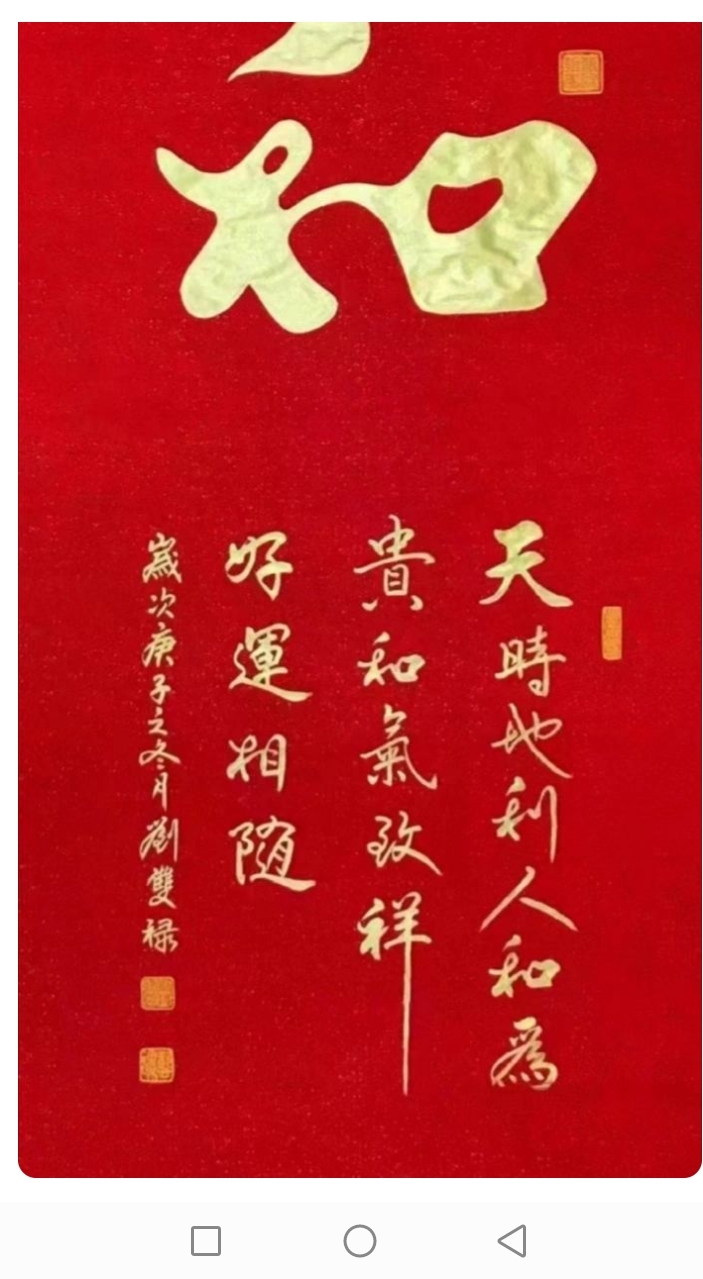 和
天時地利人和為
貴和氣致祥
好運相隨
歲次庚子之冬月劉雙禄